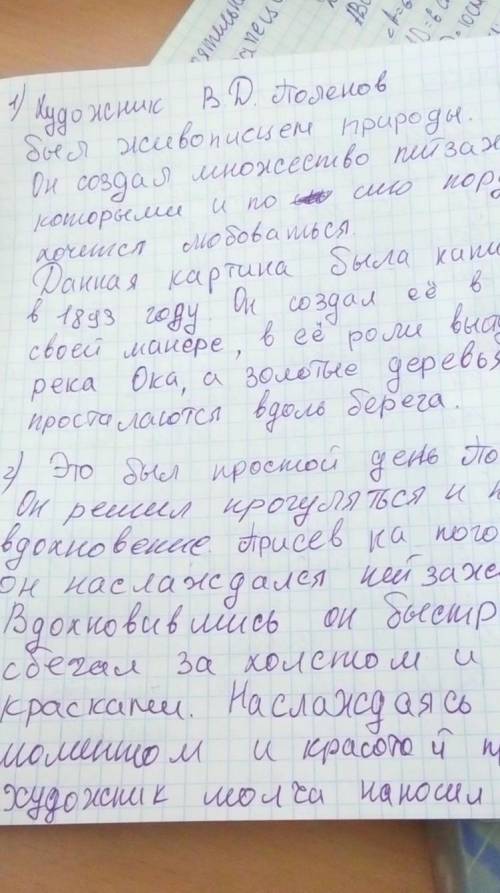 1) Художник В.Д. Поленов
был живописцем природы.
Он создал множество пейзаж
которыми и по сию пор
хочется любоваться.
Данная картина была напи
в 1893 году. Он создал её в
своей манере, в её роли выст
река Ока, а золотые деревья
простелаются вдоль берега.
2) Это был простой день По
Он решил прогуляться и п
вдохновение. Присев на пого
он наслаждался пейзаже
Вдохновившись он быстр
сбегал за холстом и
красками. Наслаждаясь
моментом и красотой п
художник молча наносил